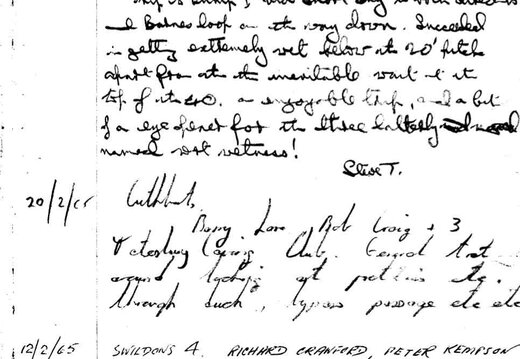 & Barnes loop on the way down. Succeeded
in getting extremely wet below the 20' pitch
apart from the inevitable wait at the
top of the 40. an enjoyable trip, and a bit
of a eye opener for the three latterly
named wot wetness!
Steve T.
20/2/65 Cuthberts
Barry Lane, Bob Craig & 3
Caving Club. General trot
around looking at pretties etc.
through duck, bypass passage etc etc
12/2/65 SWILDONS 4. RICHARD CRANFORD, PETER KEMPSON